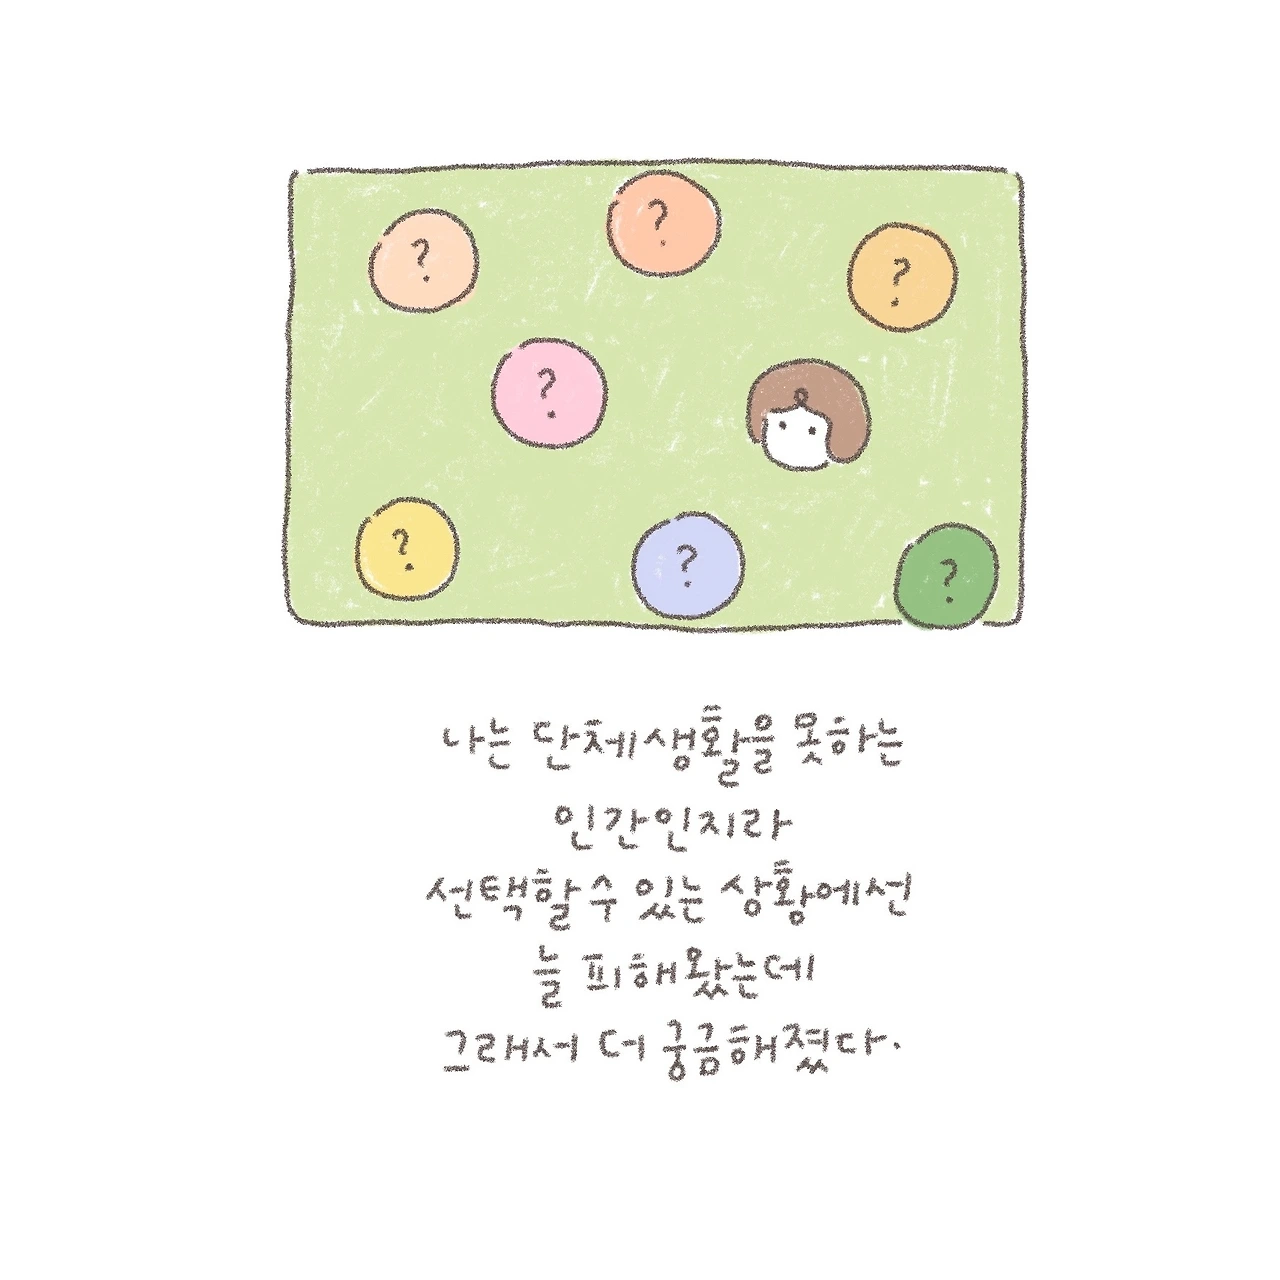 ?
?
?
?
?
?
?
나는 단체생활을 못하는
인간인지라
선택할 수 있는 상황에선
늘 피해왔는데
그래서 더 궁금해졌다.